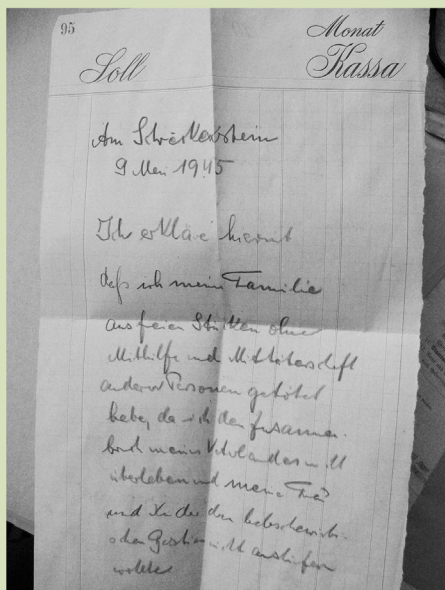 95
Monat
Soll Kassa
Am
9 Mai 1945
Ich erkläre hiermit
daß ich meine Familie
aus freien Stücken ohne
Mithilfe und Mittäterschaft
anderer Personen getötet
habe, da ich den Zusammen-
bruch meines Vaterlandes nicht
überleben und meine Frau
und Kinder den bolschewisti-
schen Bestien nicht ausliefern
wollte